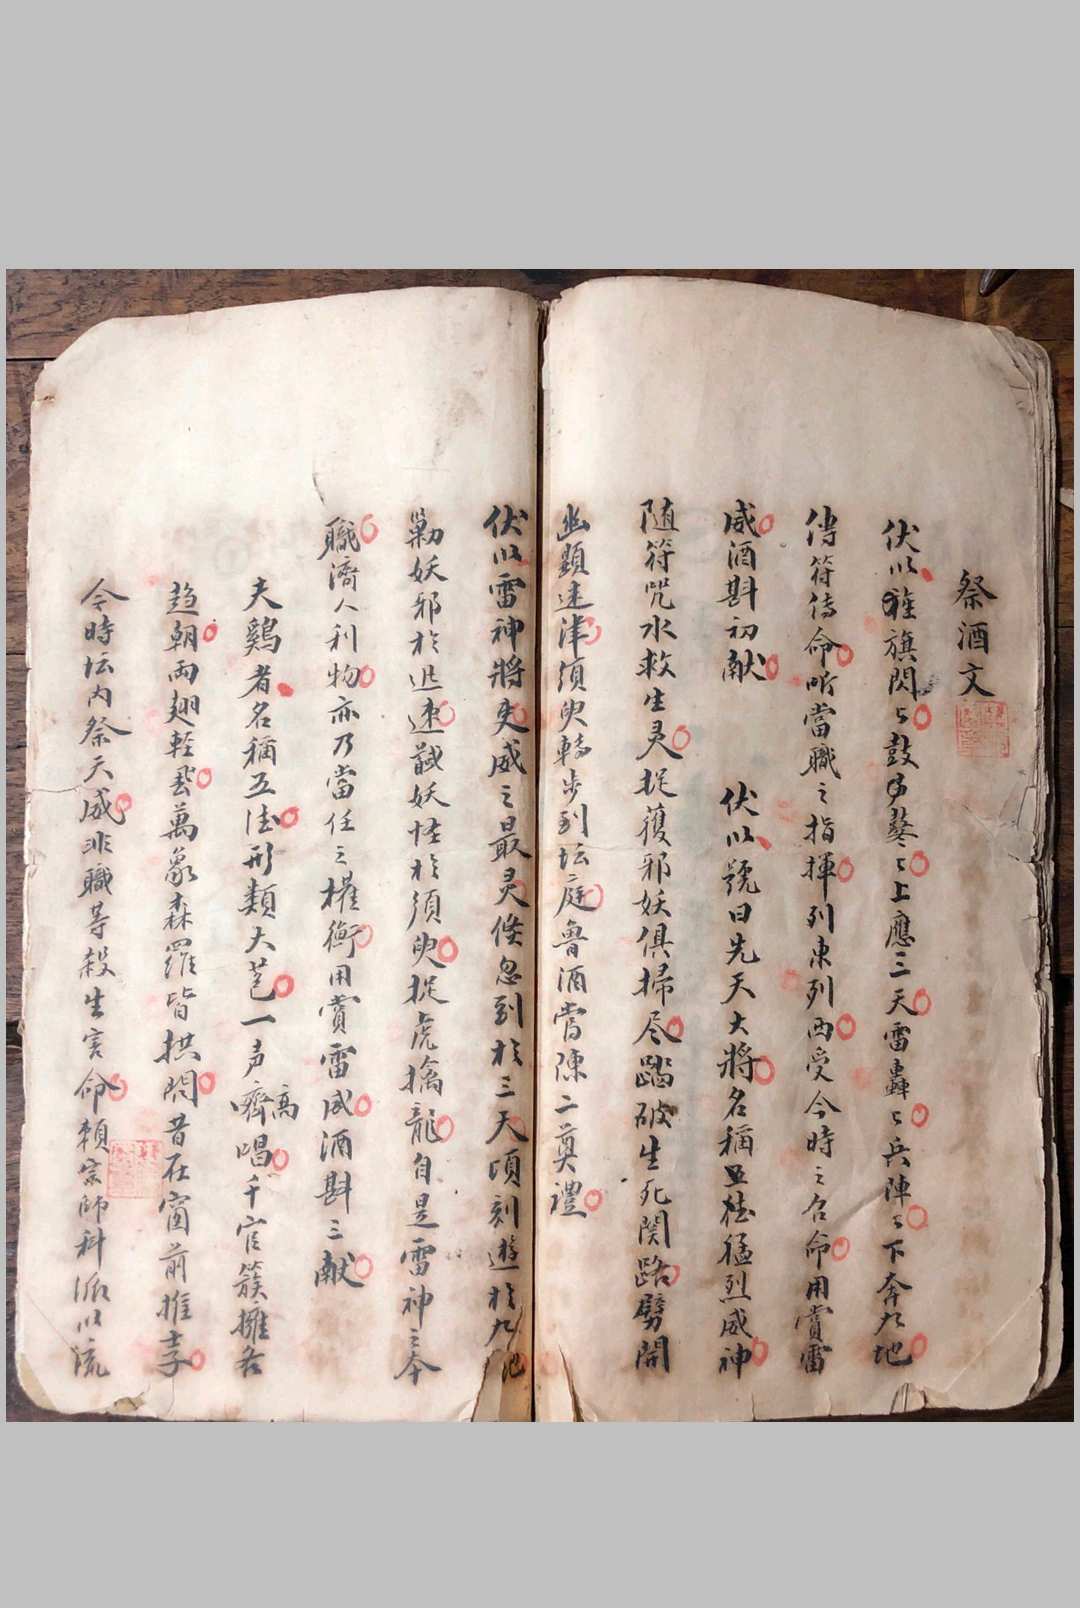 祭酒文
伏以旌旗閃〻鼓鼕〻上應三天雷轟〻兵陣〻下奔九地
傳符傳命听當職之指揮列東列西受今時之召命用賞雷
威酒斟初献 伏以號曰先天大將名稱猛烈威神
随符咒水救生灵捉獲邪妖俱掃尽踏破生死関路劈開
幽顯迷津須臾轉步到坛庭魯酒嘗陳二奠禮
伏以雷神將吏威之最灵倏忽到於三天頃刻遊於九地
勦妖邪於迅速馘妖怪於須臾捉虎擒龍自是雷神之本
職濟人利物亦乃當任之權衡用賞雷威酒斟三献
夫鷄者名稱五德形類大一声高嚌唱千官簇擁各
趋朝両翅輕萬象森羅皆拱昔在窗前推
令時坛内祭天威非職等殺生害命頼宗師科派以流